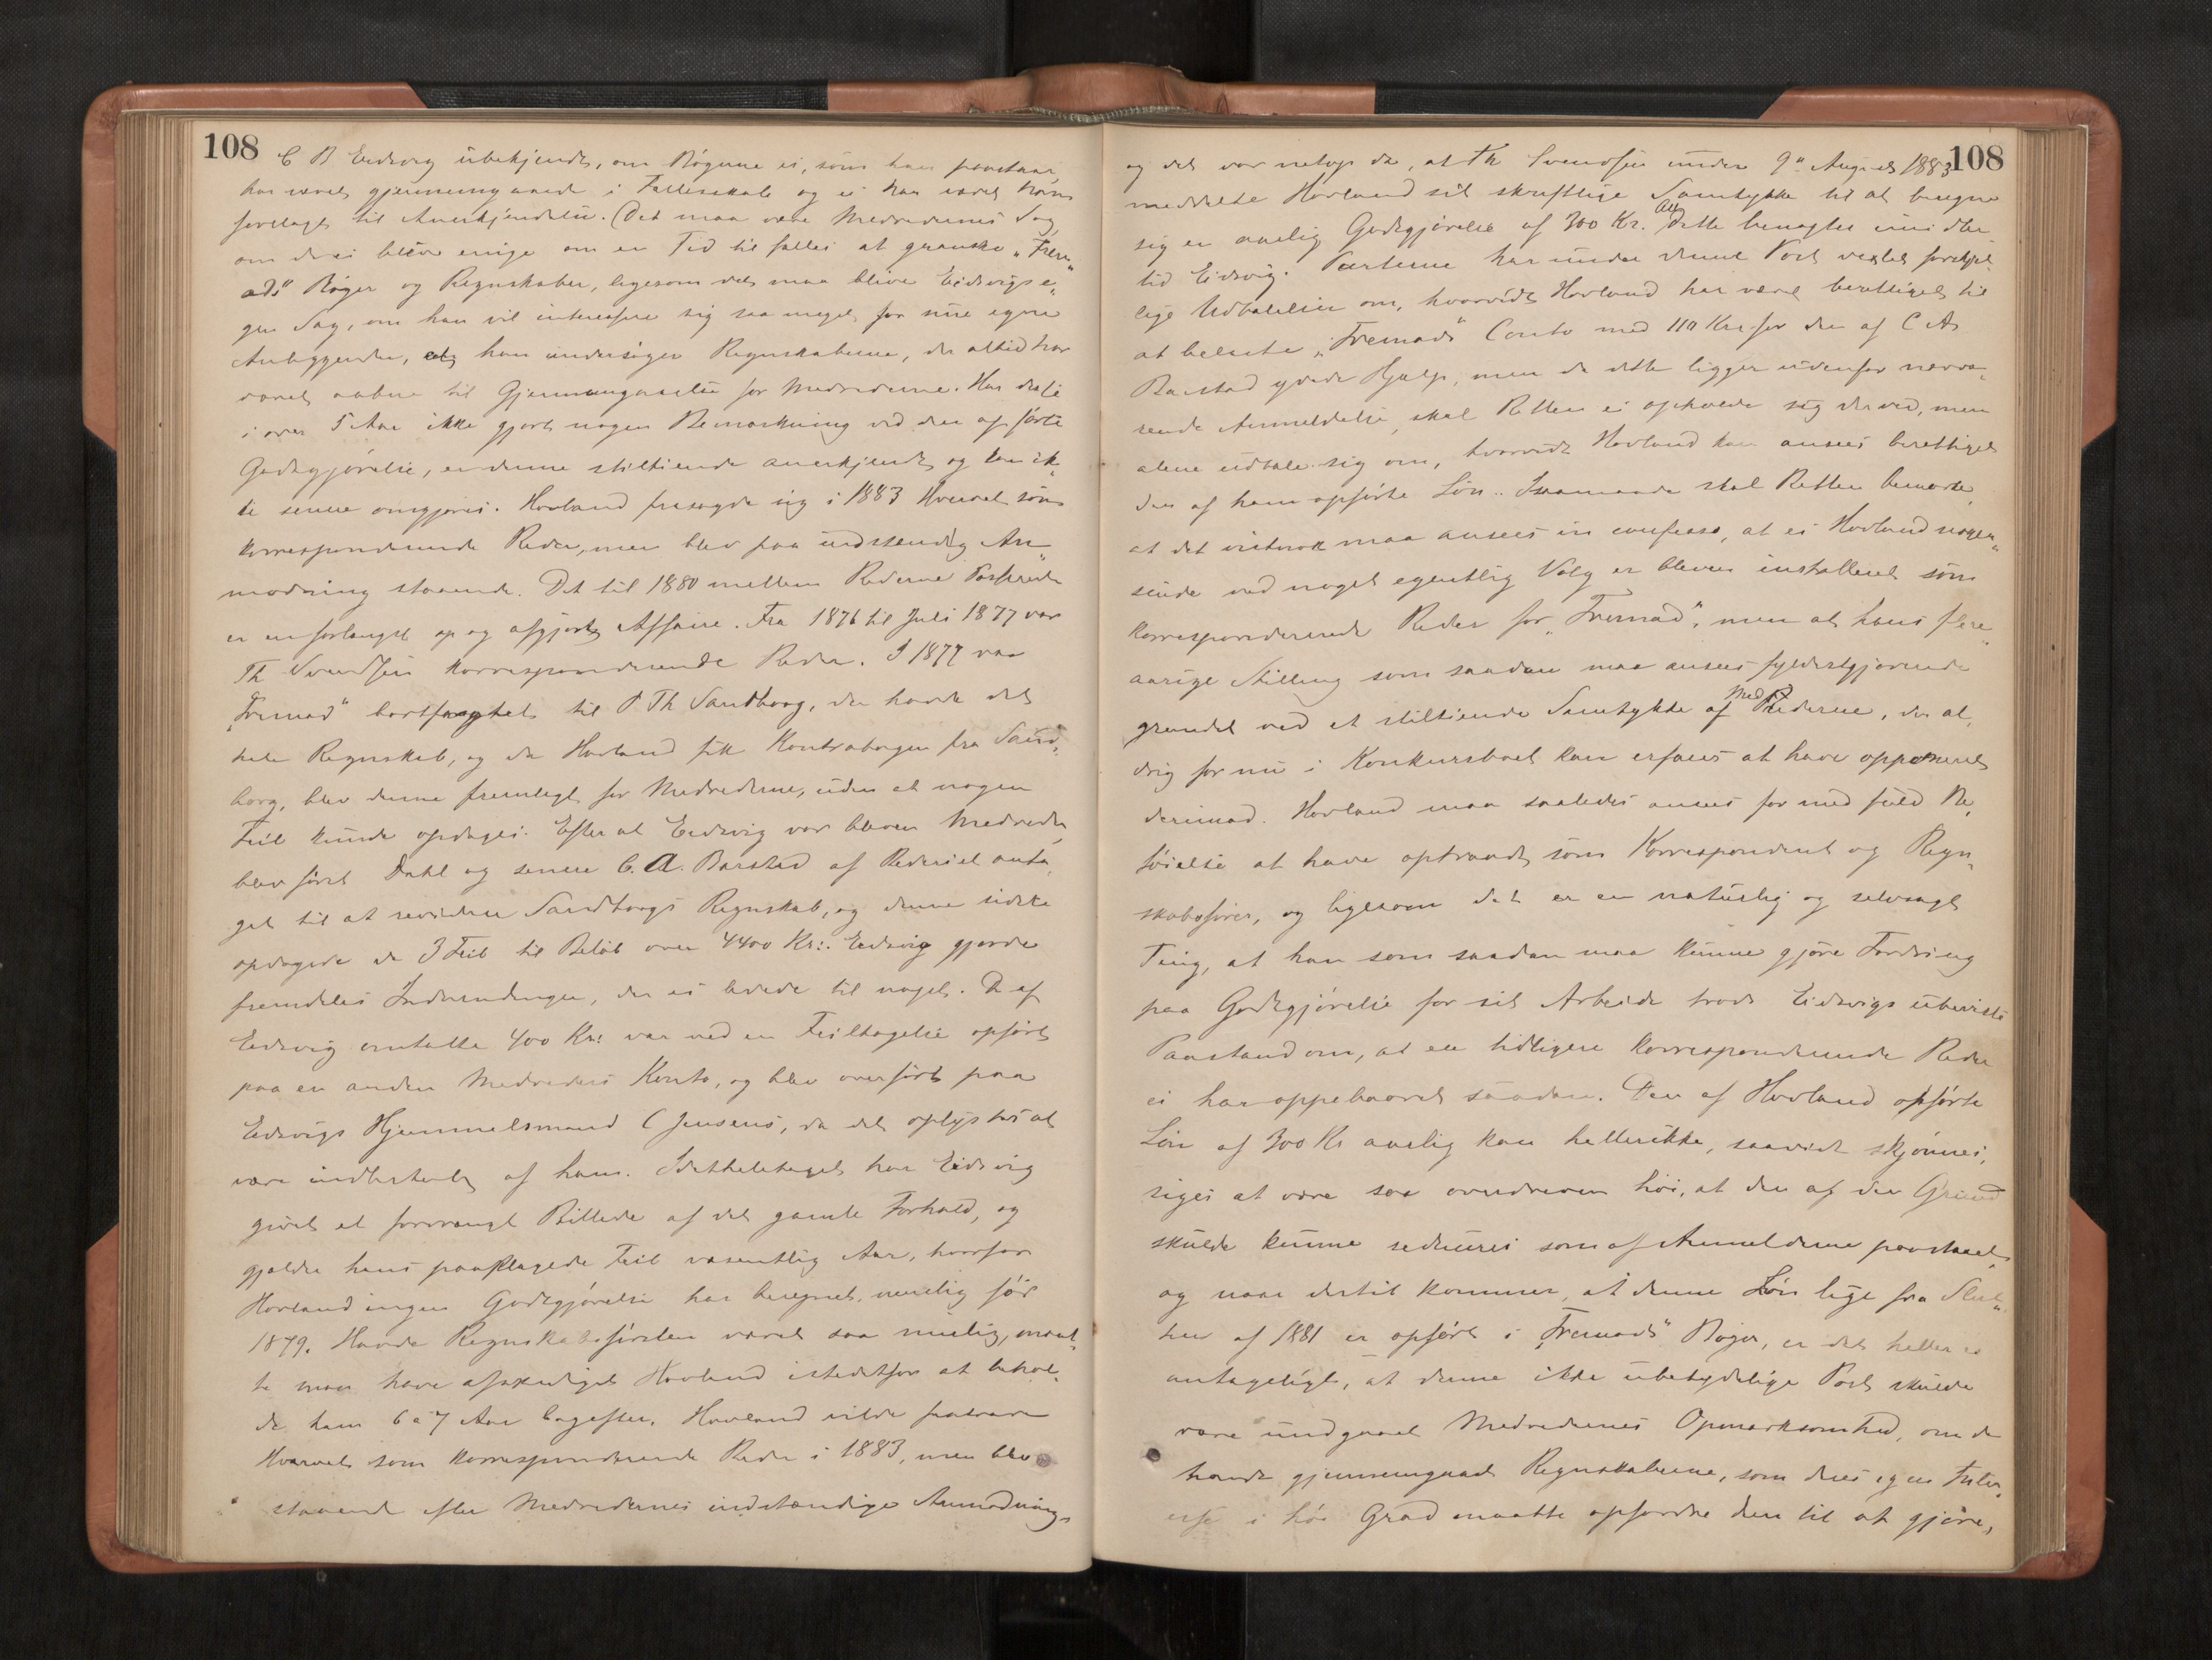 108
C B Eidsvig ubekjendt, om Bögerne ei, som han paastaar,
har været gjennemgaaede i Fællesskab og ei har været ham
forelagt til Anerkjendelse. Det maa være Medredernes Sag,
om de ei blive enige om en Tid til fælles at granske „Frem„
ads" Böger og Regnskaber, ligesom det maa blive Eidsvigs e„
gen Sag, om han vil interessere sig saa meget for sine egne
Anliggender, at han undersöger Regnskaberne, der altid har
været aabne til Gjennemgaaelse for Medrederne. Har disse
i over 5 Aar ikke gjort nogen Bemærkning ved den opförte
Godtgjörelse, er denne stiltiende anerkjendt og kan ik„
ke senere omgjöres. Hovland frasagde sig i 1883 Hvervet som
korresponderende Reder, men blev paa indstændig An„
modning staaende. Det til 1880 mellem Rederne Passerede
er en forlængst op og afgjort Affaire. Fra 1876 til Juli 1877 var
Th Svendsen korresponderende Reder. I 1877 var
„Fremad" bortfragtet til P Th Sandborg, der havde det
hele Regnskab, og da Hovland fik Kontrabogen fra Sand„
borg, blev denne fremlagt for Medrederne, uden at nogen
Feil kunde opdages. Efter at Eidsvig var bleven Medreder,
blev först Dahl og senere C. A. Barstad af Rederiet anta„
get til at revidere Sandborgs Regnskab, og denne sidste
opdagede da 3 Feil til Belöb over 4400 Kr:. Eidsvig gjorde
fremdeles Indvendinger, der ei ledede til noget. De af
Eidsvig omtalte 400 Kr: var ved en Feiltagelse opfört
paa en anden Medreders Konto, og blev overfört paa
Eidsvigs Hjemmelsmand C Jensens, da det oplystes at
være indbetalt af ham. Idetheletaget har Eidsvig
givet et forvrængt Billede af det gamle Forhold, og
gjælder hans paaklagede Feil væsentlig Aar, hvorfor
Hovland ingen Godtgjörelse har beregnet, nemlig för
1879. Havde Regnskabsförslen været saa uredig, maat„
te man have afskediget Hovland istedetfor at behol„
de ham 6 à 7 Aar bagefter. Hovland vilde fratræde
Hvervet som korresponderende Reder i 1883, men blev
staaende efter Medredernes indstændige Anmodning,
108
og det var netop da, at Th Svendsen under 9de August 1883
meddelte Hovland sit skriftlige Samtykke til at beregne
sig en aarlig Godtgjörelse af 300 Kr. Alt dette benægter imidler
tid Eidsvig. Parterne har under denne Post vexlet forskjel„
lige Udtalelser om, hvorvidt Hovland har været berettiget til
at belaste „Fremads" Conto med 110 Kr for den af C A
Barstad ydede Hjælp, men da dette ligger udenfor nærvæ„
rende Anmeldelse, skal Retten ei opholde sig derved, men
alene udtale sig om, hvorvidt Hovland kan ansees berettiget
den af ham opförte Lön. I saamaade skal Retten bemærke,
at det vistnok maa ansees in confesso, at ei Hovland nogen„
sinde ved noget egentlig Valg er bleven installeret som
korresponderende Reder for „Fremad", men at hans flere„
aarige Stilling som saadan maa ansees fyldestgjörende
grundet ved et stiltiende Samtykke af Medrederne, der al„
drig för nu i Konkursboet kan erfares at have opponeret
derimod. Hovland maa saaledes ansees for med fuld Be„
föielse at have optraadt som Korrespondent og Regn„
skabsförer, og ligesom det er en naturlig og selvsagt
Ting, at han som saadan maa kunne gjöre Fordring
paa Godtgjörelse for sit Arbeide trods Eidsvigs ubeviste
Paastand om, at en tidligere korresponderende Reder
ei har oppebaaret saadan. Den af Hovland opförte
Lön af 300 Kr aarlig kan hellerikke, saavidt skjönnes,
siges at være saa overdreven höi, at den af den Grund
skulde kunne reduceres som af Anmelderne paastaaet,
og naar dertil kommer, at denne Lön lige fra Slut„
ten af 1881 er opfört i „Fremads" Böger, er det heller ei
antageligt, at denne ikke ubetydelige Post skulde
være undgaaet Medredernes Opmærksomhed, om de
havde gjennemgaaet Regnskaberne, som deres egen Inter„
esse i höi Grad maatte opfordre dem til at gjöre,